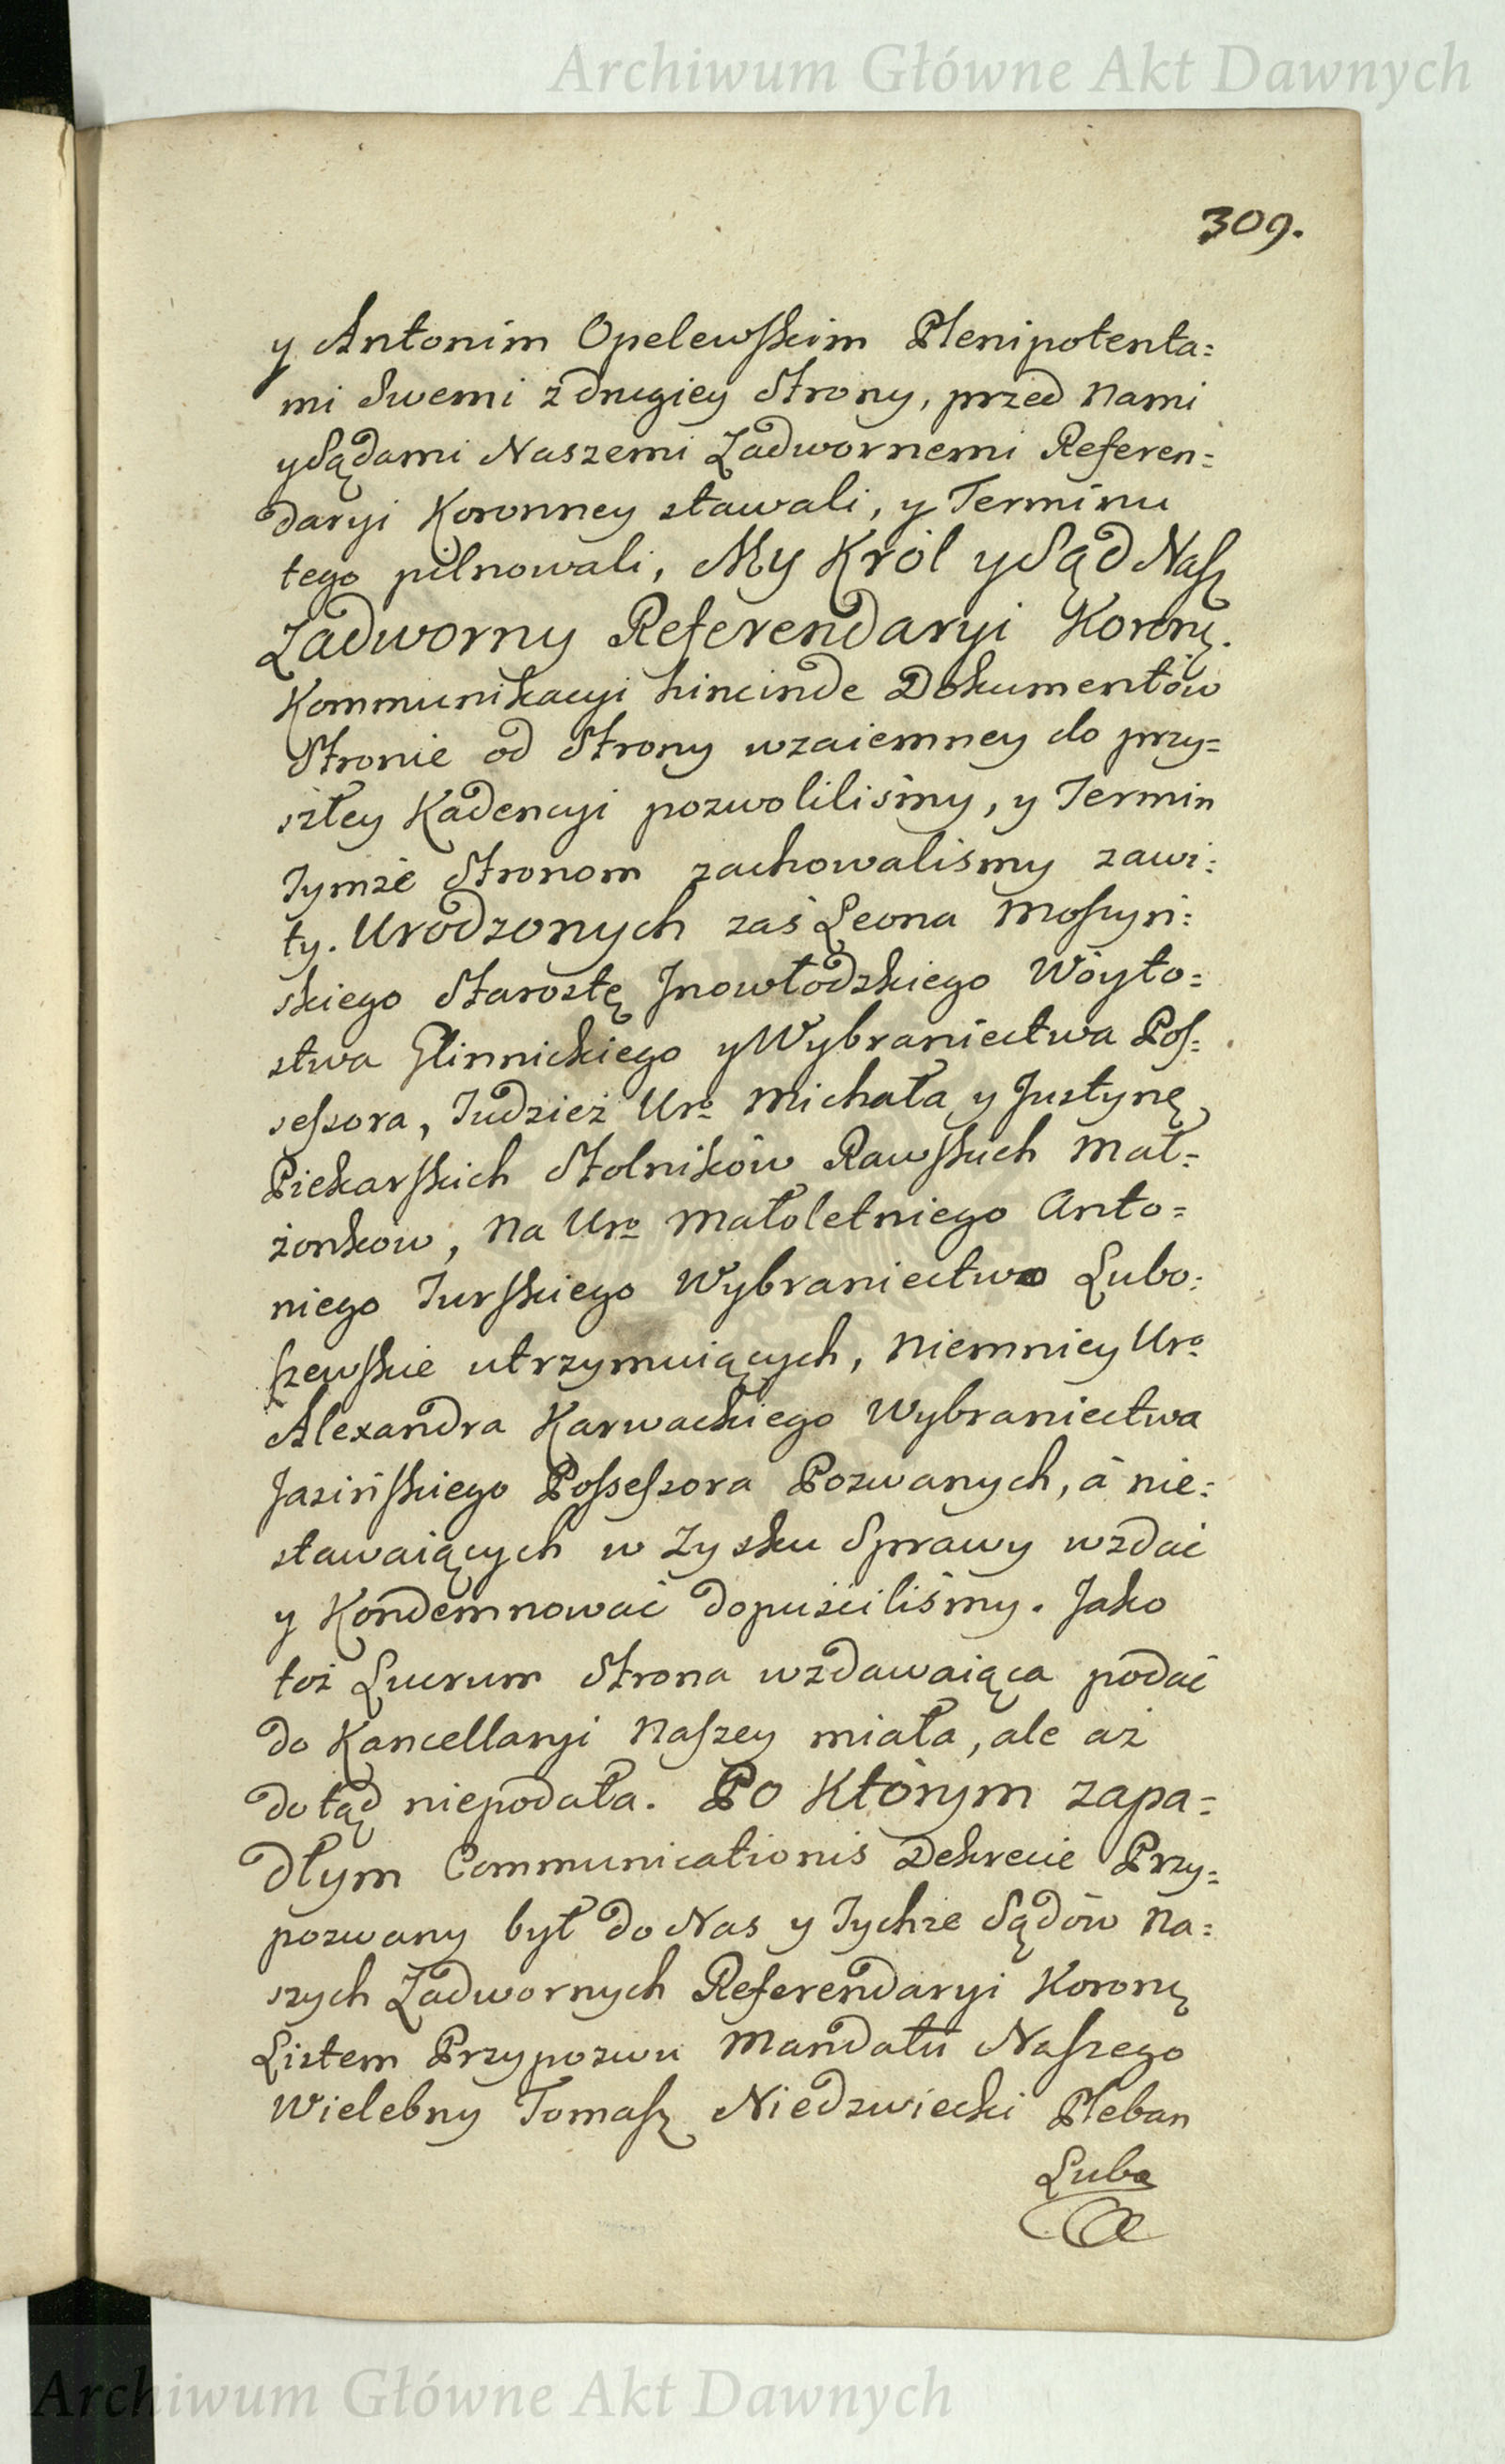 Archiwum Główne Akt Dawnych
309.
y Antonim Opelewſkim Plenipotenta=
mi Swemi z drugiey Strony, przed Nami
y Sądami Naszemi Zadwornemi Referen=
daryi Koronney stawali, y Terminu
tego pilnowali, My Król y Sąd Naſz
Zadworny Referendaryi Koronę.
Kommunikacyi hincinde Dokumentów
Stronie od Strony wzaiemney do przy=
szłey Kadencyi pozwoliliśmy, y Termin
Tymże Stronom zachowaliśmy zawi=
ty. Urodzonych zaś Leona Moszyń=
skiego Starostę Jnowłodzkiego Wóyto=
stwa Glinnickiego y Wybraniectwa Poſ=
seſsora, Tudzież Uro Michała y Justynę
Piekarſkich Stolników Rawſkich Mał=
żonkow, na Uro Małoletniego Anto=
niego Turſkiego Wybraniectwo Lubo=
ſzewſkie utrzymuiących, niemniey Uro
Alexandra Karwackiego Wybraniectwa
Jasińſkiego Poſseſsora Pozwanych, á nie=
stawaiących w Zysku Sprawy wzdać
y Kondemnować dopuściliśmy. Jako
toż Lucrum Strona wzdawaiąca podać
do Kancellaryi Naſzey miała, ale aż
dotąd niepodała. Po Którym zapa=
dłym Communicationis Dekrecie Przy=
pozwany był do Nas y Tychże Sądów Na=
szych Zadwornych Referendaryi Koronę
Listem Przypozwu Mandatu Naſzego
Wielebny Tomaſz Niedzwiecki Pleban
Lubo
Archiwum Główne Akt Dawnych